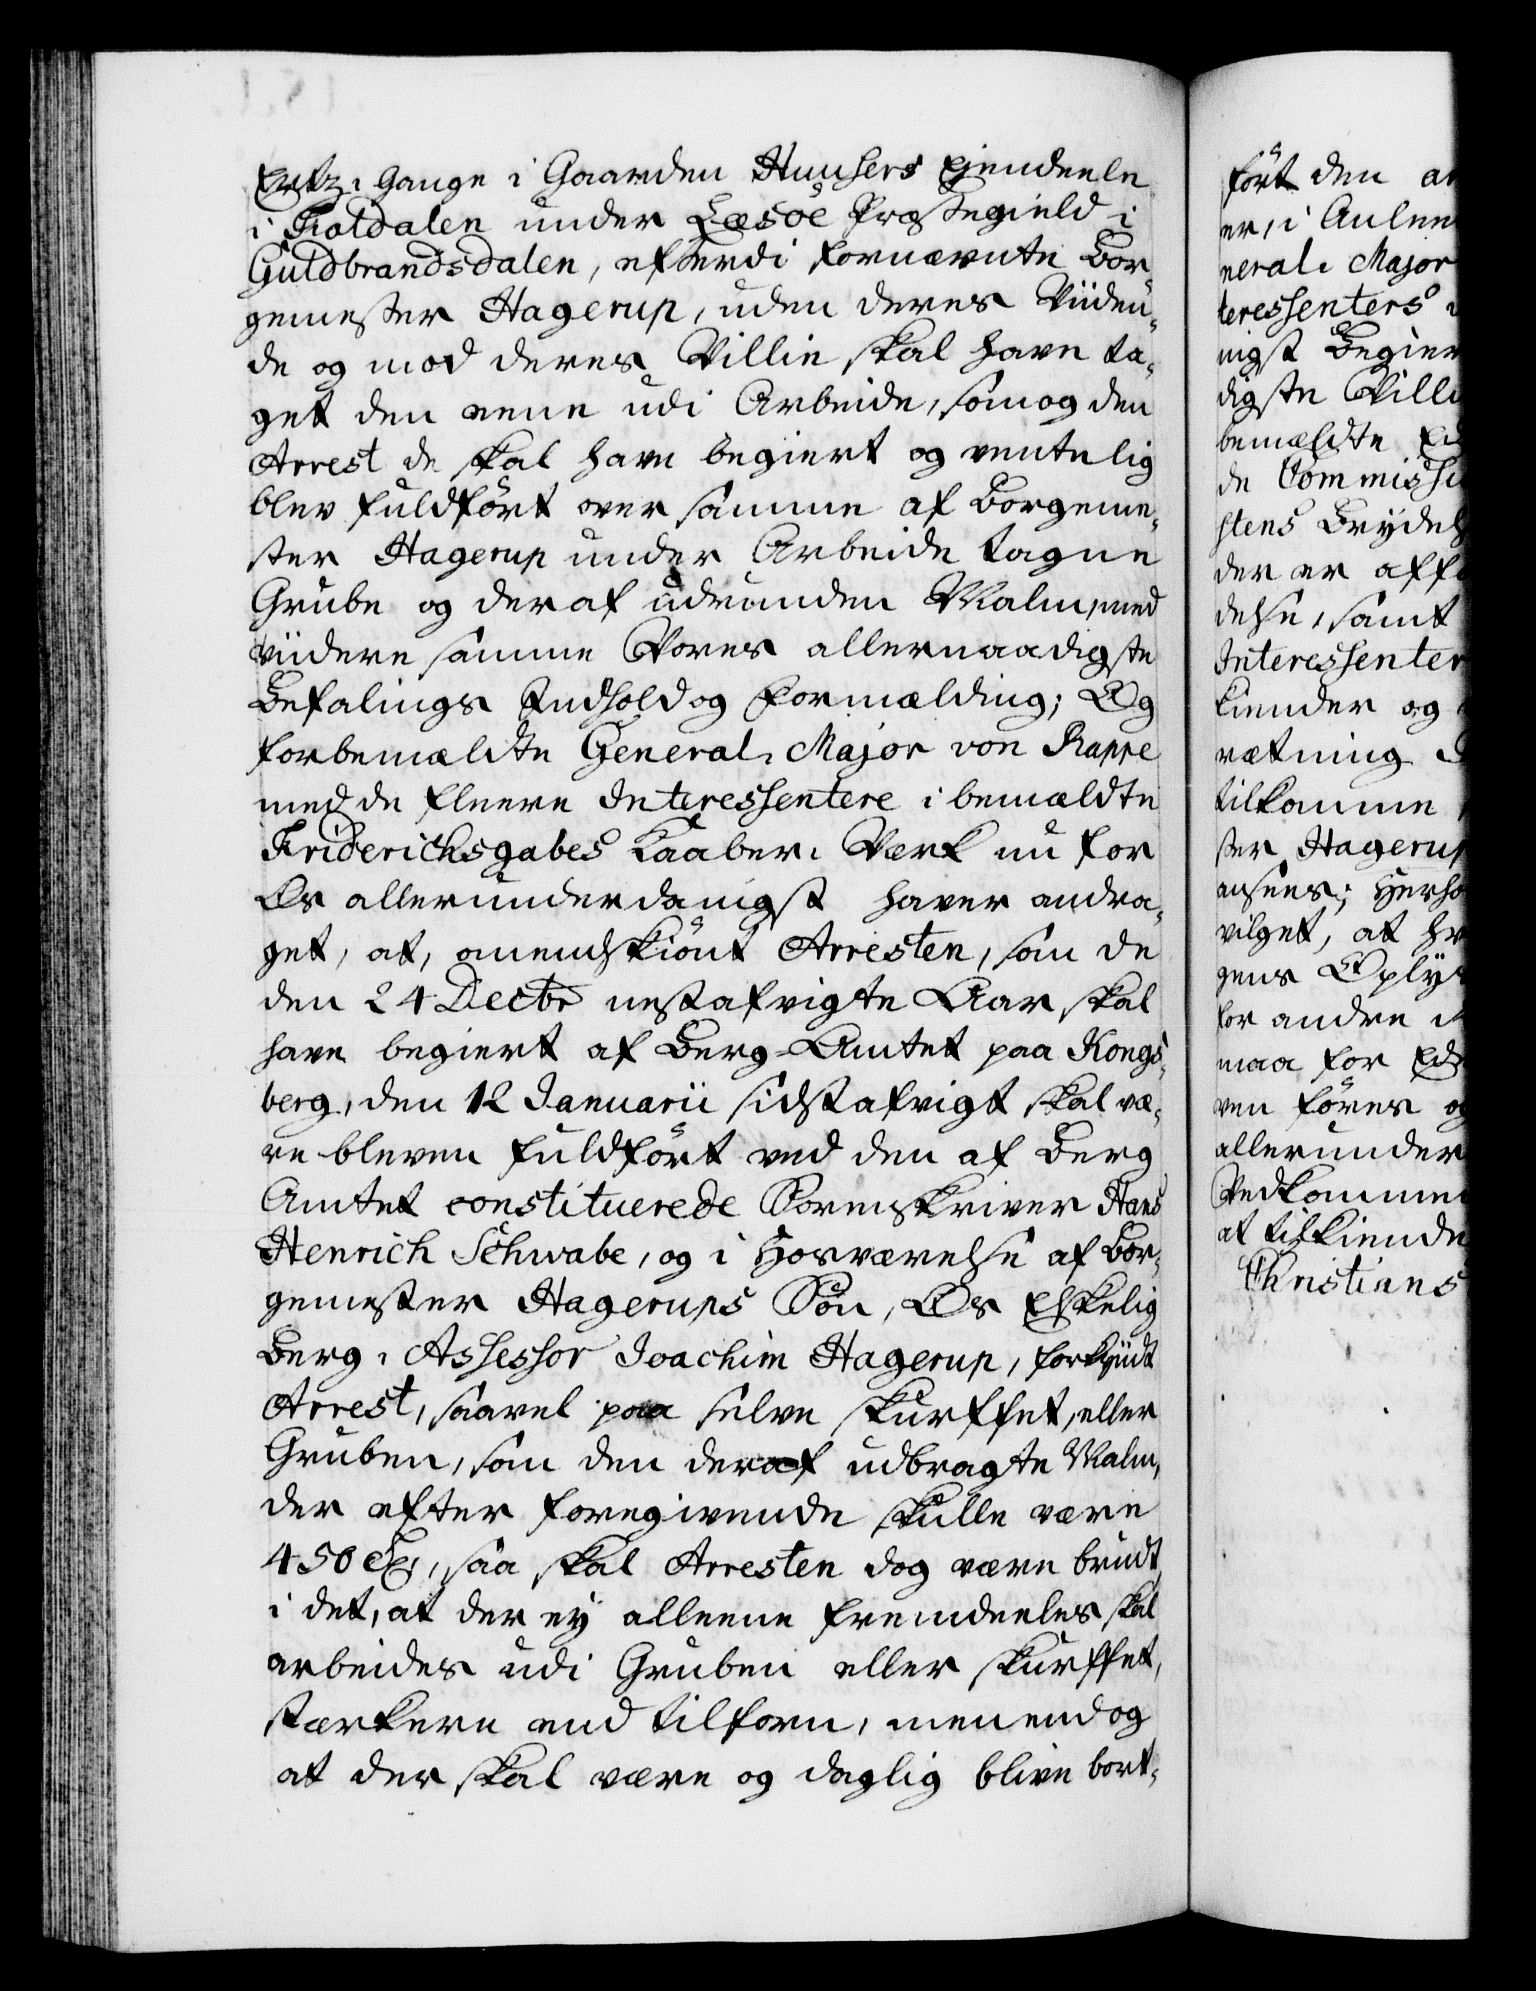 Ertz-Gange i Gaarden Huusers Ejendeele
i Foldalen under Læsøe Præstegield i
Guldbrandsdalen, efterdi fornævnte Bor-
gemester Hagerup, uden deres Viiden-
de og mod deres Villie skal have ta-
get den eene udi Arbeide, som og den
Arrest de skal have begiert og ventelig
blev fuldført over samme af Borgeme-
ster Hagerup under Arbeide tagne
Grube og deraf udvunden Malm, med
viidere samme Vores allernaadigste
Befalings Indhold og Formælding; Og
forbemældte General-Major von Rappe
med de fleere Interessentere i bemældte
Friderichsgabes Kaaber-Værk nu for
Os allerunderdanigst haver andra-
get, at, omendskiønt Arresten, som de
den 24 Decbr nestafvigte Aar skal
have begiert af Berg-Amtet paa Kongs-
berg, den 12 Januarii sidstafvigt skal væ-
re bleven fuldført ved den af Berg
Amtet constituerede Sorenskriver Hans
Henrich Schwabe, og i Hosværelse af Bor-
gemester Hagerups Søn, Os Elskelig
Berg-Assessor Joachim Hagerup, forkyndt
Arrest, saavel paa selve Skurffet, eller
Gruben, som den deraf udbragte Malm,
der efter foregivende skulle være
450 Tr, saa skal Arresten dog være brudt
i det, at der ey alleene fremdeeles skal
arbeides udi Gruben eller Skurffet,
stærkere end tilforn, men endog
at der skal være og daglig blive bort-
ført den
er, i
neral-Major
teressenters
nigst Begier
digste Villi
bemældte
de Commissi
stens Brydels
der er
delse, samt
Interessenter
kiender og
rætning
tilkomme
ster Hagerup
ansees;
vilget, at
gens Oplys
for andre
maa for
ven føres og
allerunder
Vedkommen
at tilkiende
Christians